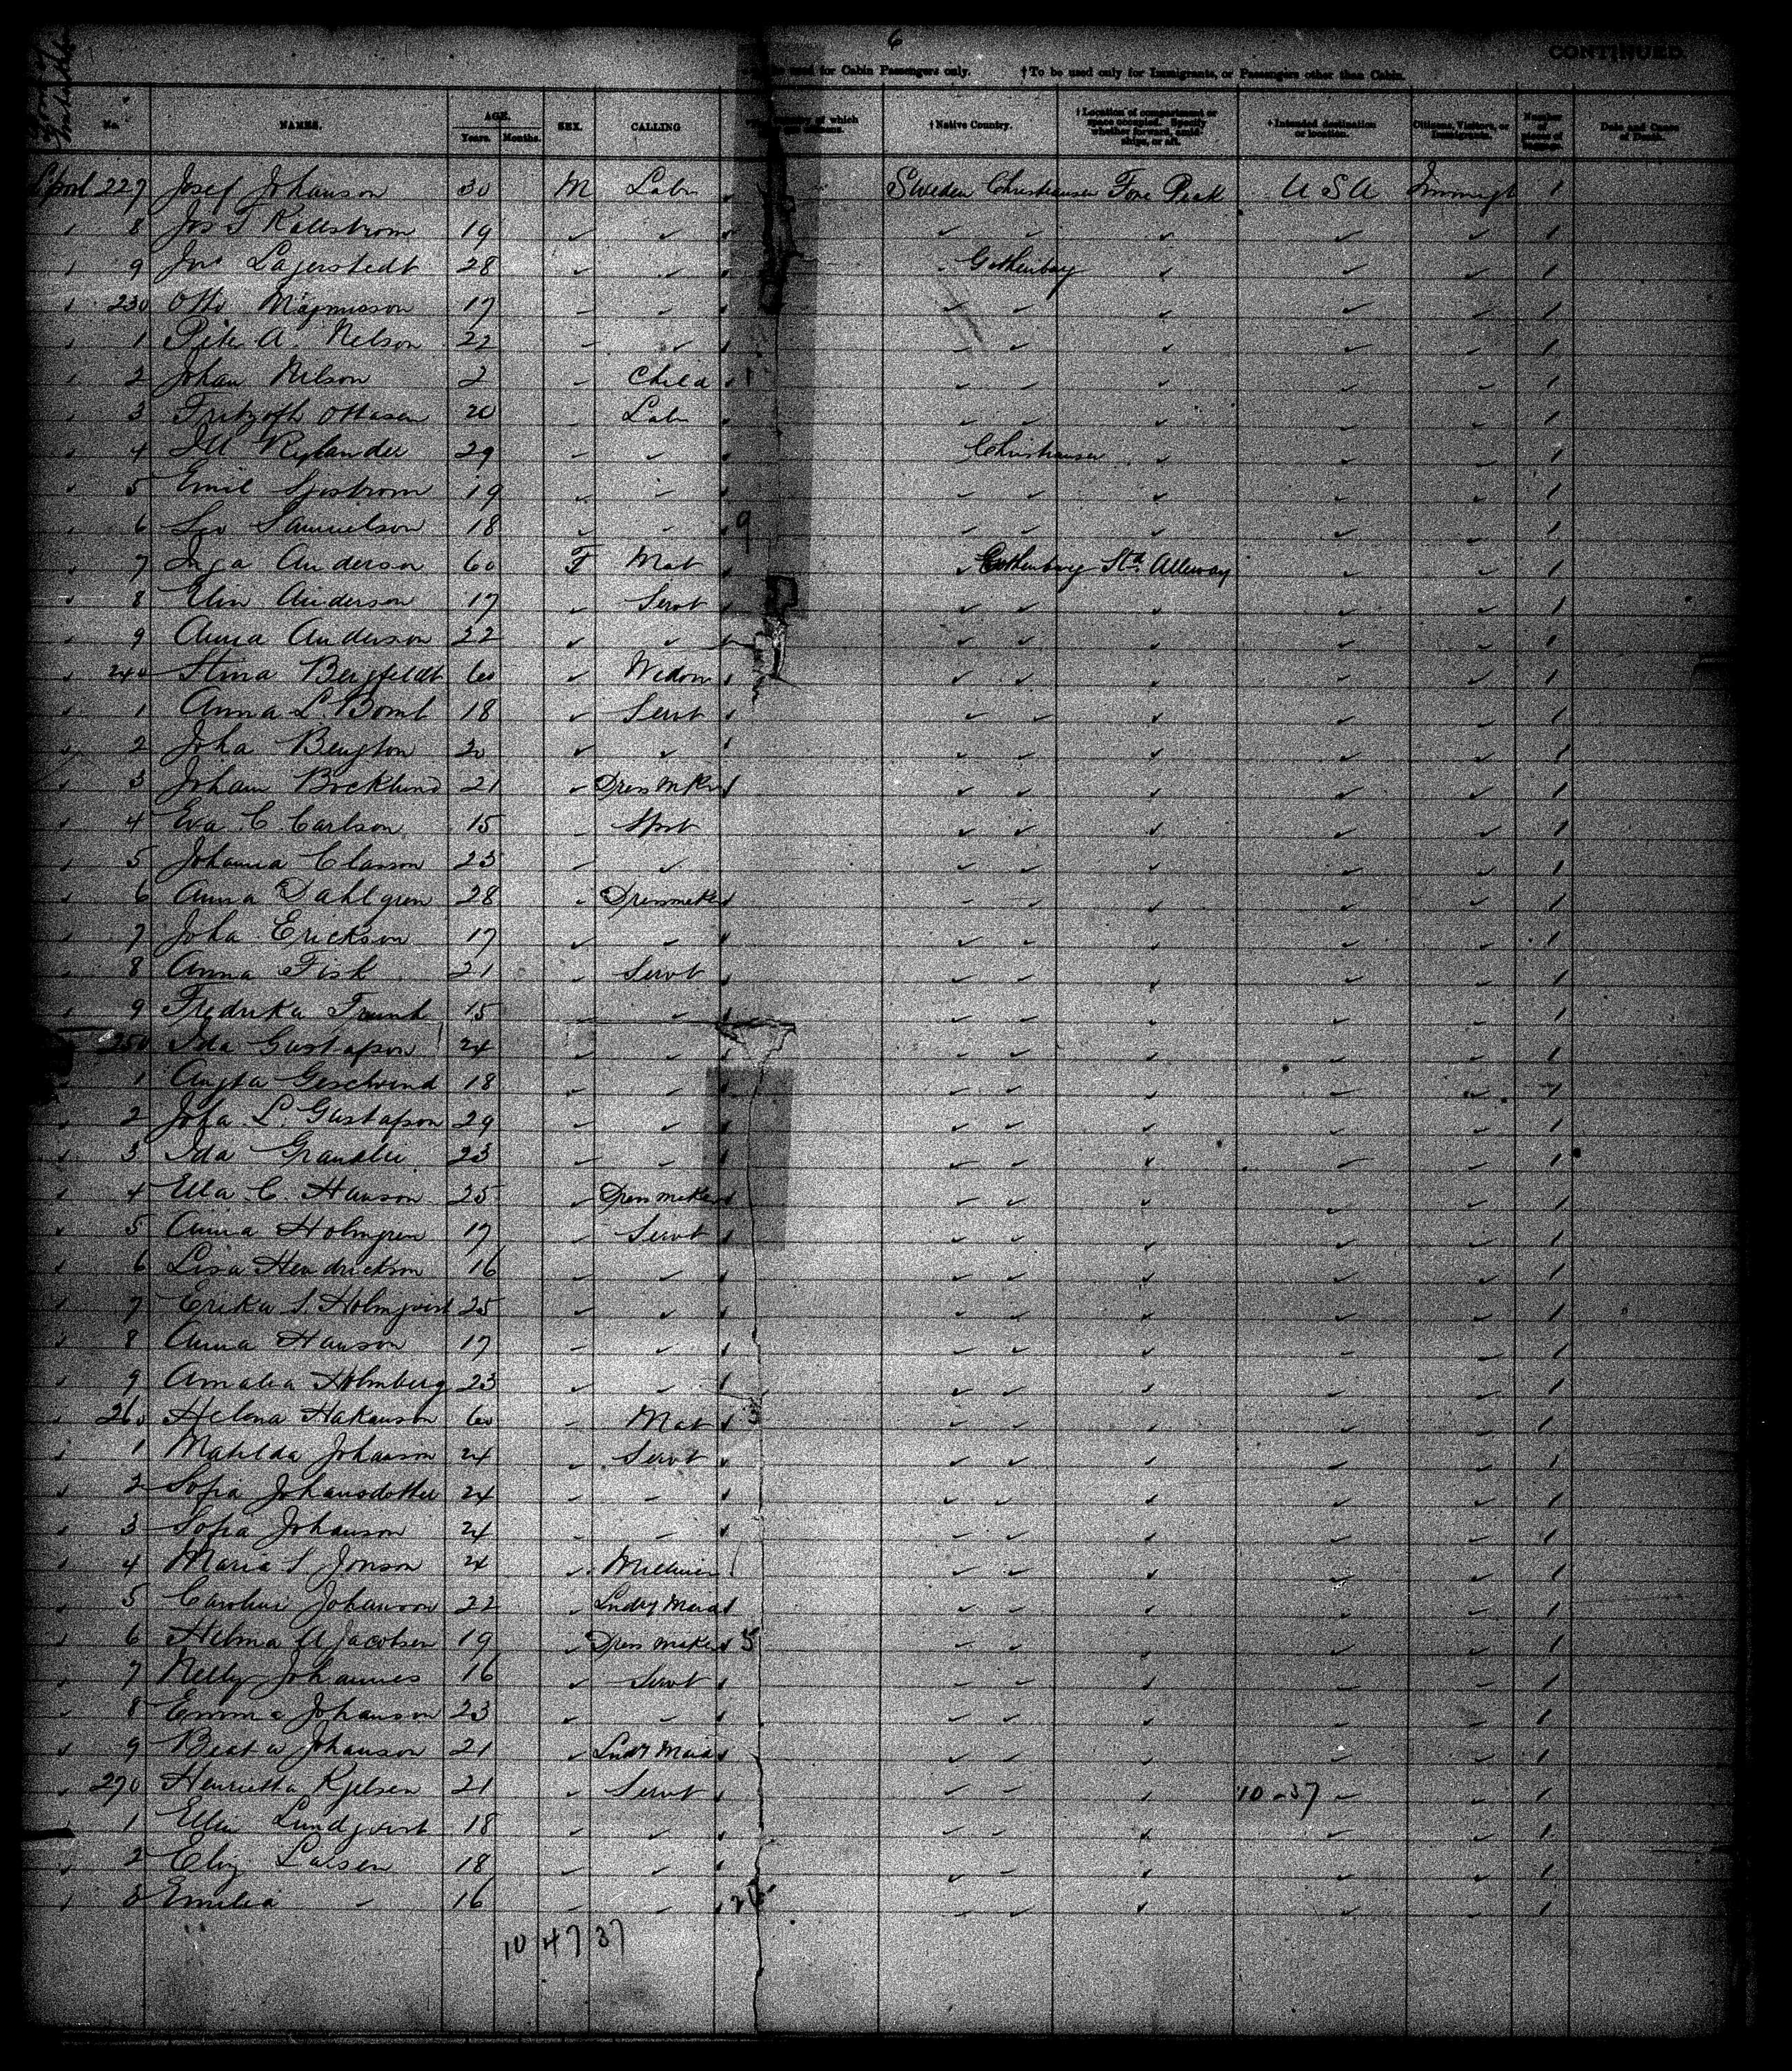 6
CONTINUED.
be used for Cabin Passengers only. † To be used only for Immigrants, or Passengers other than Cabin.
No. NAMES. AGE. Years. Months. SEX. CALLING country of which † Native Country. † Location of compartment or space occupied. whether forward, amidships, or aft. † Intended destination or location. Citizens, Visitors, or Immigrants. Number of pieces of baggage. Date and Cause of Death.
227 Josef Johanson 30 M Labr Sweden Fore Peak U S A 1
8 Jos F Kallstrom 19 ✓ ✓ ✓ ✓ ✓ ✓ ✓ 1
9 Jno Lagerstedt 28 ✓ ✓ Gothenburg ✓ ✓ ✓ 1
230 Otto Magnusson 17 ✓ ✓ ✓ ✓ ✓ ✓ 1
1 Peter A. Nelson 22 ✓ ✓ ✓ ✓ ✓ ✓ 1
2 Johan Nilson 2 ✓ Child ✓ ✓ ✓ ✓ ✓ 1
3 Ottasen 20 ✓ Labr ✓ ✓ ✓ ✓ ✓ 1
4 Rylander 29 ✓ ✓ ✓ ✓ ✓ 1
5 Emil Sjostrom 19 ✓ ✓ ✓ ✓ ✓ ✓ ✓ 1
6 Samuelson 18 ✓ ✓ 9 ✓ ✓ ✓ ✓ ✓ 1
7 Inga Anderson 60 F Mat Gothenburg Alleway ✓ ✓ 1
8 Elin Anderson 17 ✓ Servt ✓ ✓ ✓ ✓ ✓ 1
9 Anna Anderson 22 ✓ ✓ ✓ ✓ ✓ ✓ ✓ 1
240 Stina Bergfeldt 60 ✓ Widow ✓ ✓ ✓ ✓ ✓ 1
1 Anna L. 18 ✓ Servt ✓ ✓ ✓ ✓ ✓ 1
2 Joha Bengton 20 ✓ ✓ ✓ ✓ ✓ ✓ ✓ 1
3 Backlund 21 ✓ Dress mKr ✓ ✓ ✓ ✓ ✓ 1
4 Eva C. Carlson 15 ✓ ✓ ✓ ✓ ✓ ✓ 1
5 Johanna Classon 23 ✓ ✓ ✓ ✓ ✓ ✓ ✓ 1
6 Anna Dahlgren 28 ✓ Dressmaker ✓ ✓ ✓ ✓ ✓ 1
7 Joha Erickson 17 ✓ ✓ ✓ ✓ ✓ ✓ ✓ 1
8 Anna Fisk 21 ✓ Servt ✓ ✓ ✓ ✓ ✓ 1
9 Fredrika 15 ✓ ✓ ✓ ✓ ✓ ✓ ✓ 1
250 Ida Gustafson 24 ✓ ✓ ✓ ✓ ✓ ✓ ✓ 1
1 Augta Geschvind 18 ✓ ✓ ✓ ✓ ✓ ✓ ✓ 1
2 Joha L. Gustafson 29 ✓ ✓ ✓ ✓ ✓ ✓ ✓ 1
3 Ida 23 ✓ ✓ ✓ ✓ ✓ ✓ ✓ 1
4 Ella C. Hanson 25 ✓ Dress maker ✓ ✓ ✓ ✓ ✓ 1
5 Anna Holmgren 17 ✓ Servt ✓ ✓ ✓ ✓ ✓ 1
6 Lisa Hendrickson 16 ✓ ✓ ✓ ✓ ✓ ✓ ✓ 1
7 Erika S. Holmqvist 25 ✓ ✓ ✓ ✓ ✓ ✓ ✓ 1
8 Anna Hanson 17 ✓ ✓ ✓ ✓ ✓ ✓ ✓ 1
9 Amalia Holmberg 23 ✓ ✓ ✓ ✓ ✓ ✓ ✓ 1
260 Helena Hakanson 60 ✓ Mat ✓ ✓ ✓ ✓ ✓ 1
1 Matilda Johanson 24 ✓ Servt ✓ ✓ ✓ ✓ ✓ 1
2 Sofia Johansdotter 24 ✓ ✓ ✓ ✓ ✓ ✓ ✓ 1
3 Sofia Johanson 24 ✓ ✓ ✓ ✓ ✓ ✓ ✓ 1
4 Maria S Jonson 24 ✓ Milliner ✓ ✓ ✓ ✓ ✓ 1
5 Caroline Johanson 22 ✓ Lndry Maid ✓ ✓ ✓ ✓ ✓ 1
6 Hilma A Jacobsen 19 ✓ Dress maker 5 ✓ ✓ ✓ ✓ ✓ 1
7 Nelly Johannes 16 ✓ Servt ✓ ✓ ✓ ✓ ✓ 1
8 Emma Johanson 23 ✓ ✓ ✓ ✓ ✓ ✓ ✓ 1
9 Beata Johanson 21 ✓ Lndy Maid ✓ ✓ ✓ ✓ ✓ 1
270 Henrietta Kjelsen 21 ✓ Servt ✓ ✓ ✓ 10-37 ✓ ✓ 1
1 Ellin Lundqvist 18 ✓ ✓ ✓ ✓ ✓ ✓ ✓ 1
2 Eliz Larsen 18 ✓ ✓ ✓ ✓ ✓ ✓ ✓ 1
3 Emilia - 16 ✓ ✓ ✓ ✓ ✓ ✓ ✓ 1
10/47/37